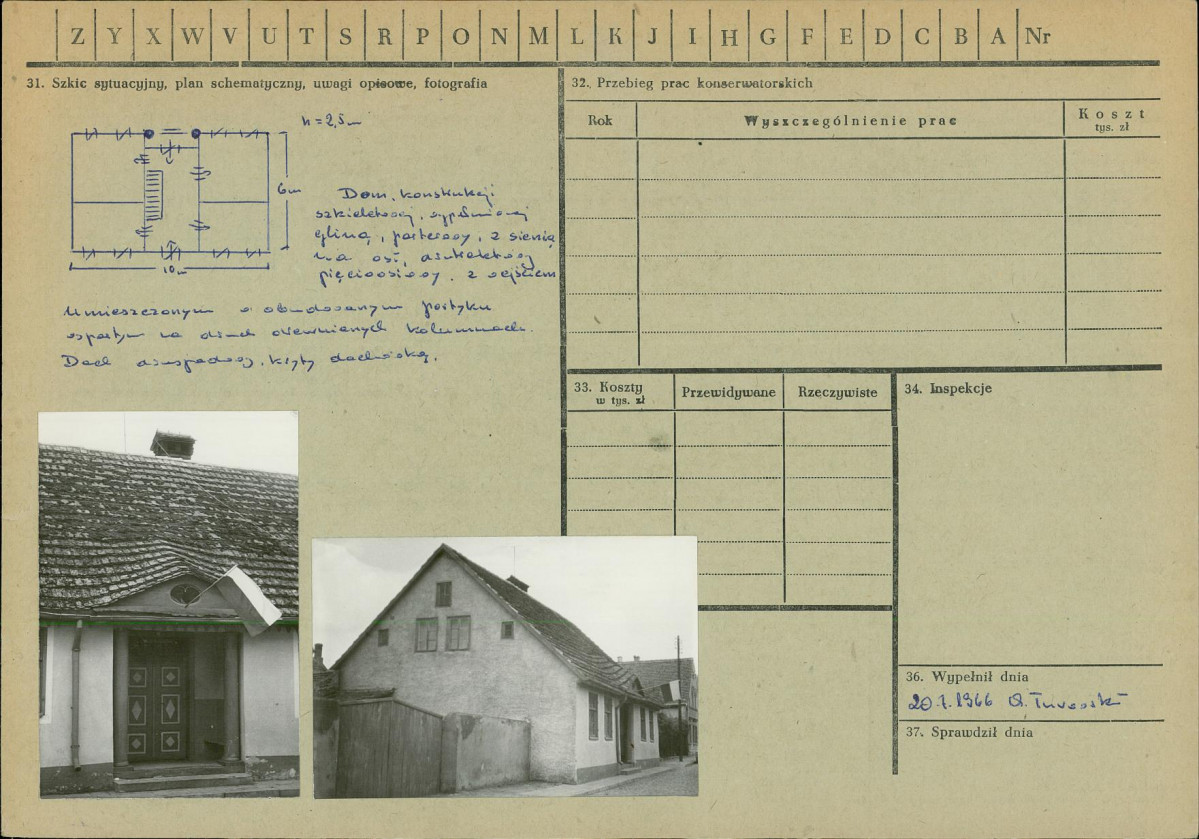 Z Y X W V U T S R P O N M L K J I H G F E D C B A Nr
31. Szkic sytuacyjny, plan schematyczny, uwagi opisowe, fotografia
h = 2,5 m
6 m
10 m
Dom konstrukcji
szkieletowej, wypełnionej
gliną, parterowy, z sienią
na osi,
pięcioosiowy, z wejściem
umieszczonym w obudowanym portyku
wspartym na dwuch drewnianych kolumnach.
Dach dwuspadowy, kryty dachówką.
32. Przebieg prac konserwatorskich
Rok
Wyszczególnienie prac
Koszt
tys. zł
33. Koszty
w tys. zł
Przewidywane
Rzeczywiste
34. Inspekcje
36. Wypełnił dnia
1966
37. Sprawdził dnia